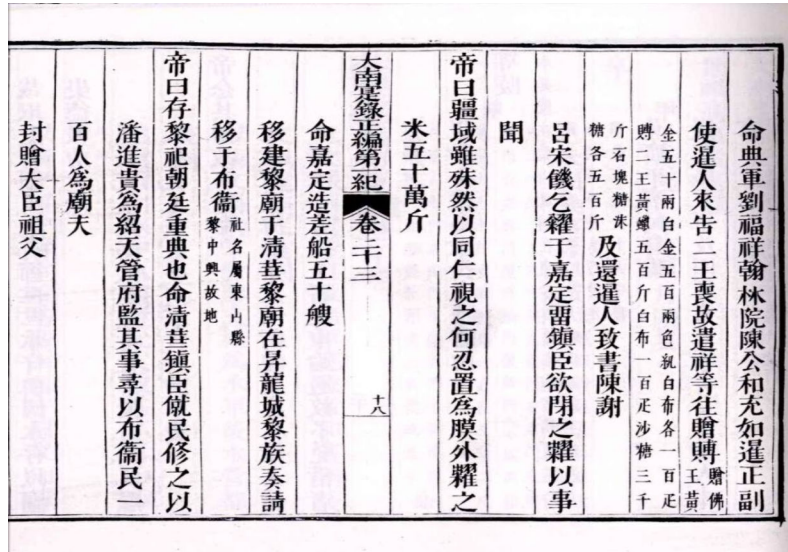 命典軍劉福祥翰林院陳公和充如暹正副
使暹人來告二王喪故遣祥等往贈賻贈佛王黃
金五十兩白金五百兩色紈白布各一百疋
賻二王黃蠟五百斤白布一百疋沙糖三千
斤石塊糖
糖各五百斤及還暹人致書陳謝
呂宋饑乞糴于嘉定畱鎮臣欲閉之糴以事
聞
帝曰疆域雖殊然以同仁視之何忍置爲膜外糴之
米五十萬斤
大南寔錄正編第一紀 卷二十三 十八
命嘉定造差船五十艘
移建黎廟于淸葩黎廟在昇龍城黎族奏請
移于布衞社名屬東山縣黎中興故地
帝曰存黎祀朝廷重典也命淸葩鎮臣僦民修之以
潘進貴爲紹天管府監其事尋以布衞民一
百人爲廟夫
封贈大臣祖父